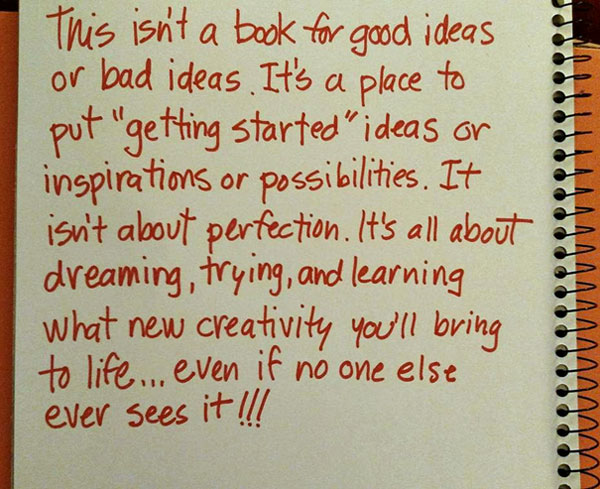 This isn't a book for good ideas
or bad ideas. It's a place to
put "getting started" ideas or
inspirations or possibilities. It
isn't about perfection. It's all about
dreaming, trying, and learning
what new creativity you'll bring
to life... even if no one else
ever sees it!!!